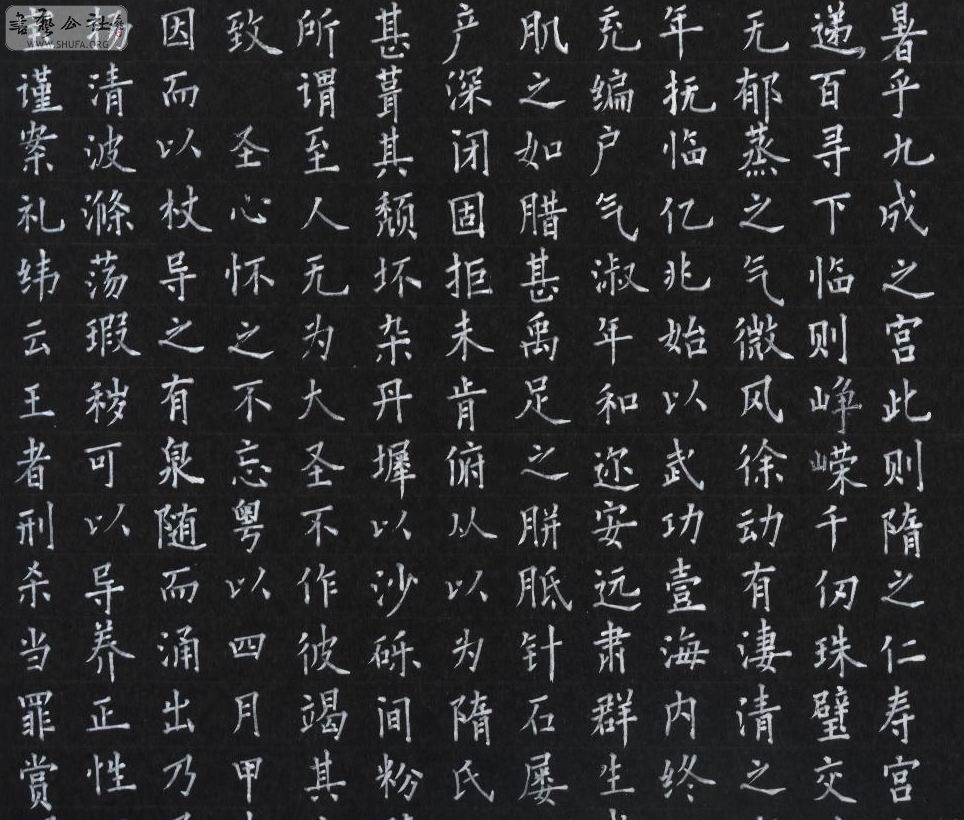 暑乎九成之宫此则隋之仁寿宫
递百寻下临则峥嵘千仞珠璧交
无郁蒸之气微风徐动有凄清之
年抚临亿兆始以武功壹海内终
充编户气淑年和迩安远肃群生
肌之如腊甚禹足之胼胝针石屡
产深闭固拒未肯俯从以为隋氏
甚葺其颓坏杂丹墀以沙砾间粉
所谓至人无为大圣不作彼竭其
致 圣心怀之不忘粤以四月甲
因而以杖导之有泉随而涌出乃
扬清波滌荡瑕秽可以导养正性
谨案礼纬云王者刑杀当罪赏
書藝公社
WWW.SHUFA.ORG